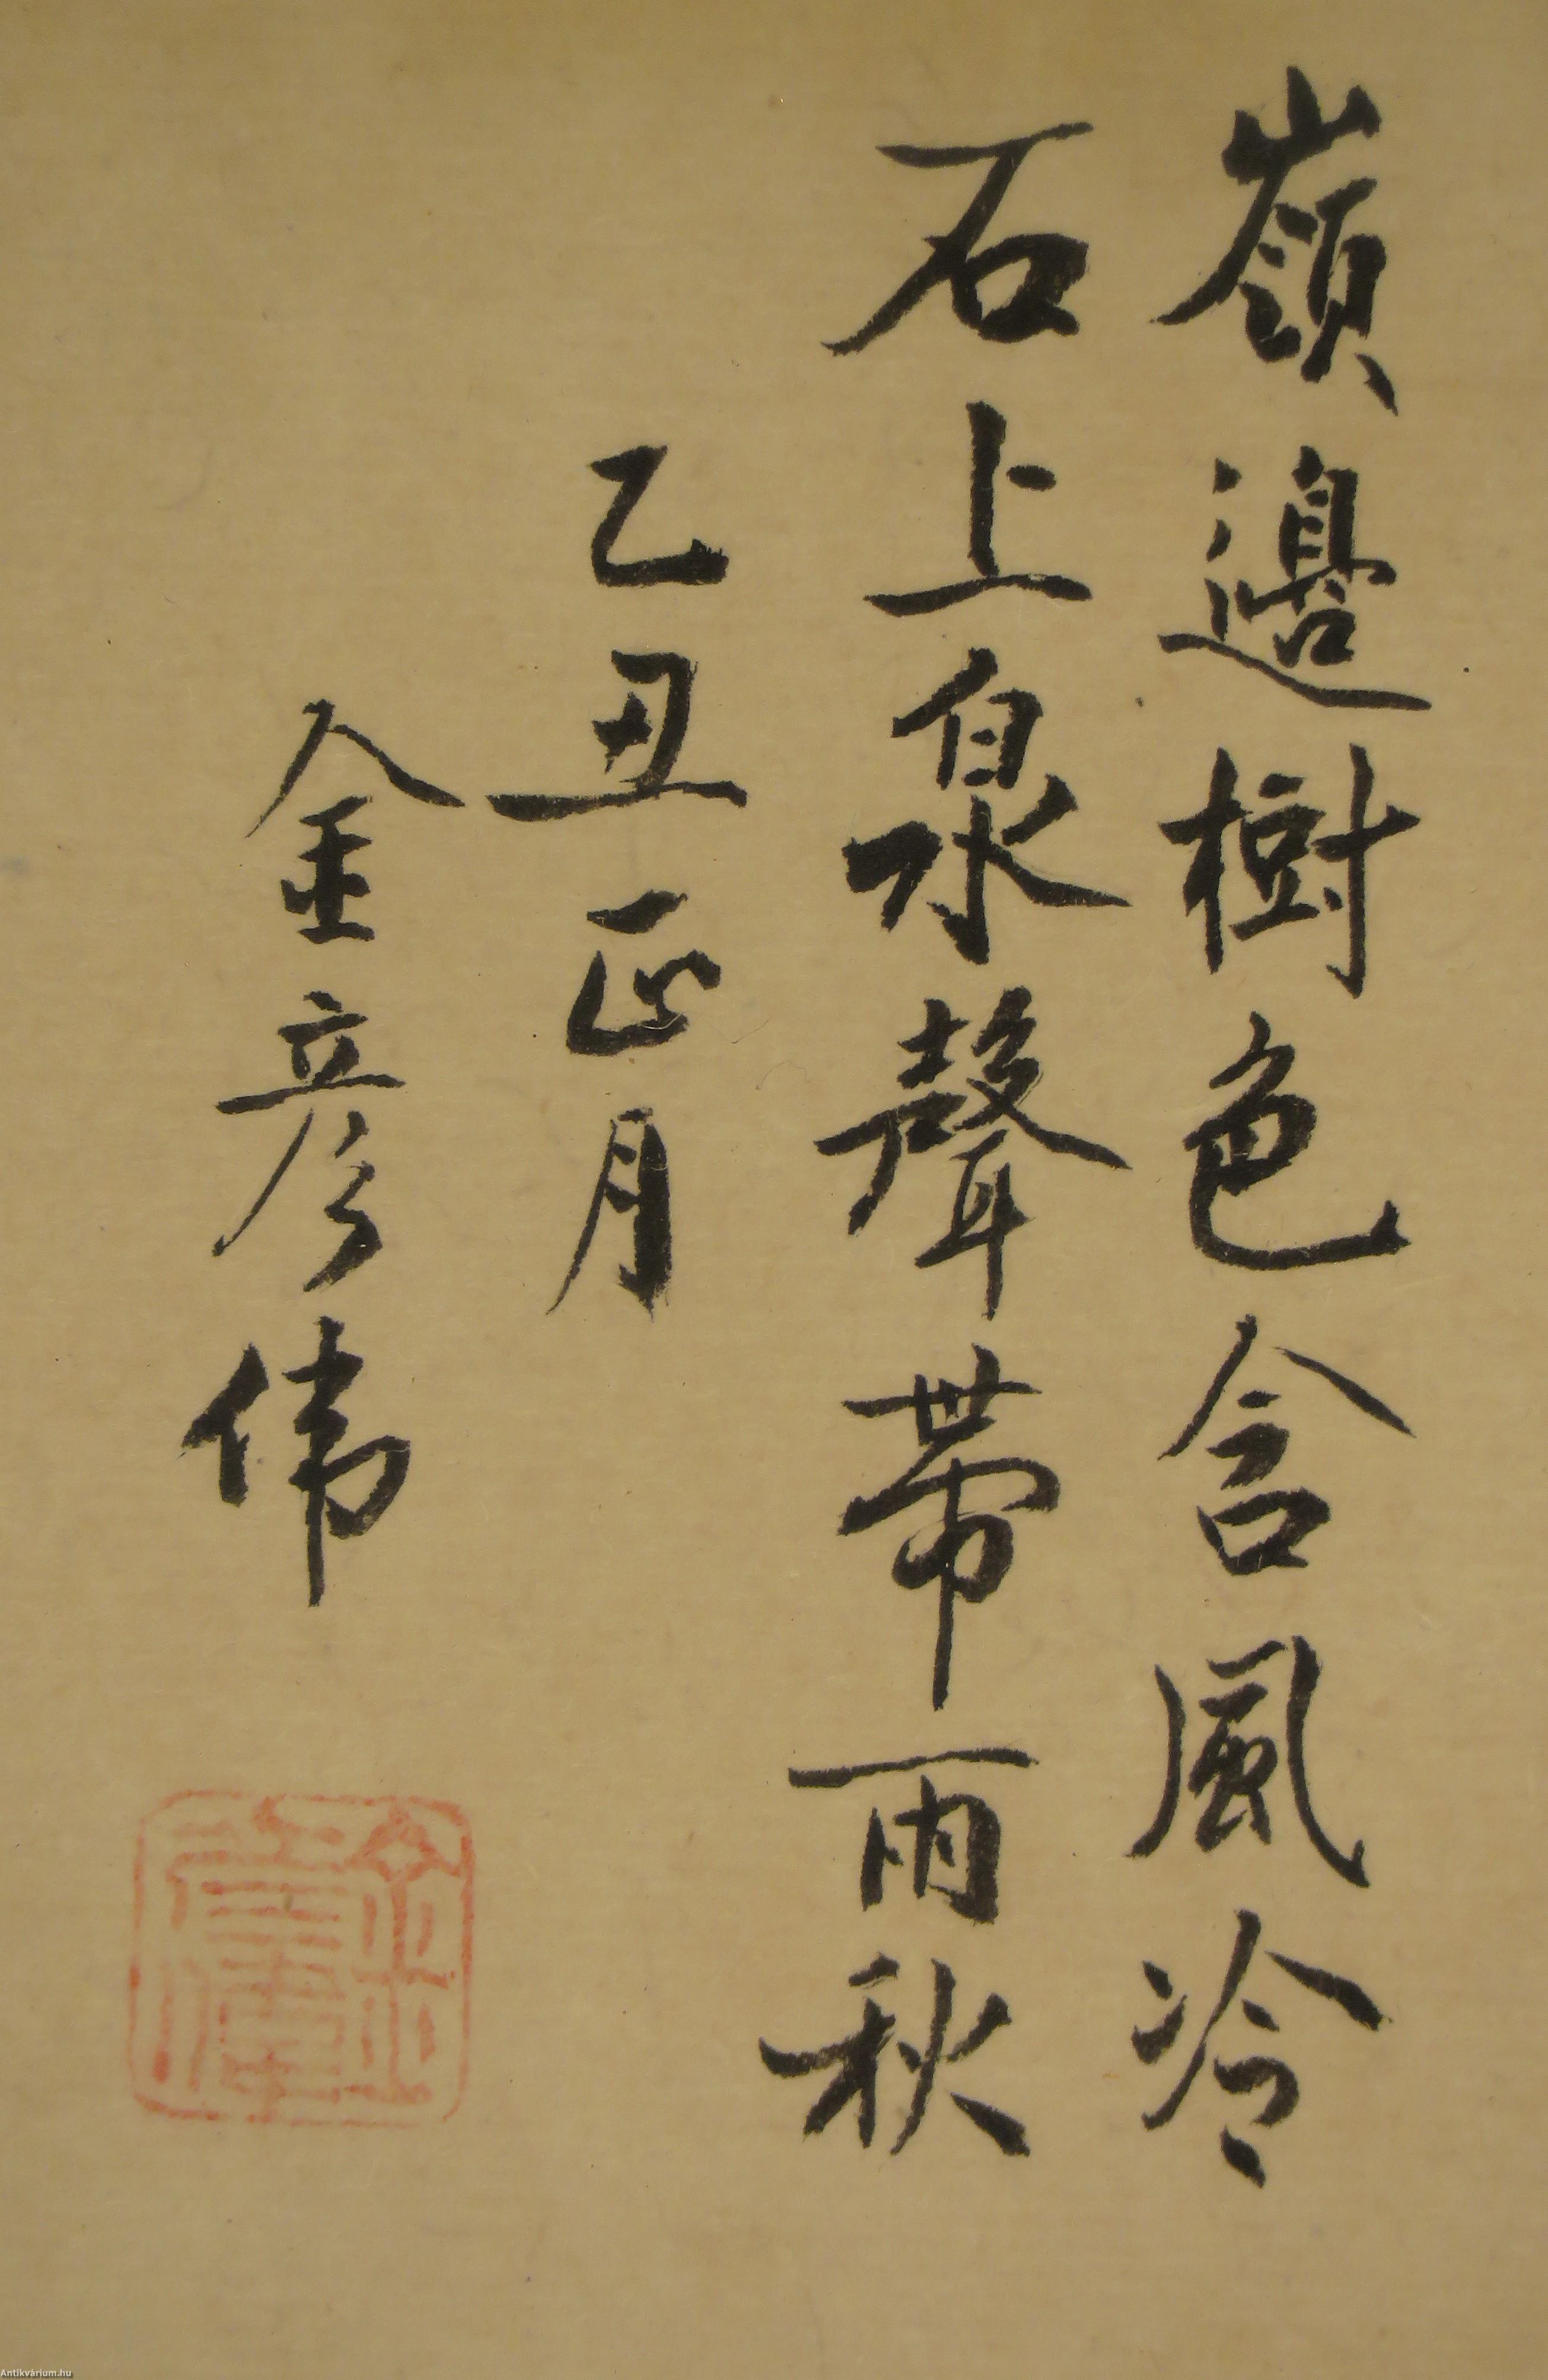 嶺邊樹色含風冷
石上泉聲帶雨秋
乙丑正月
金彥偉
Antikvárium.hu